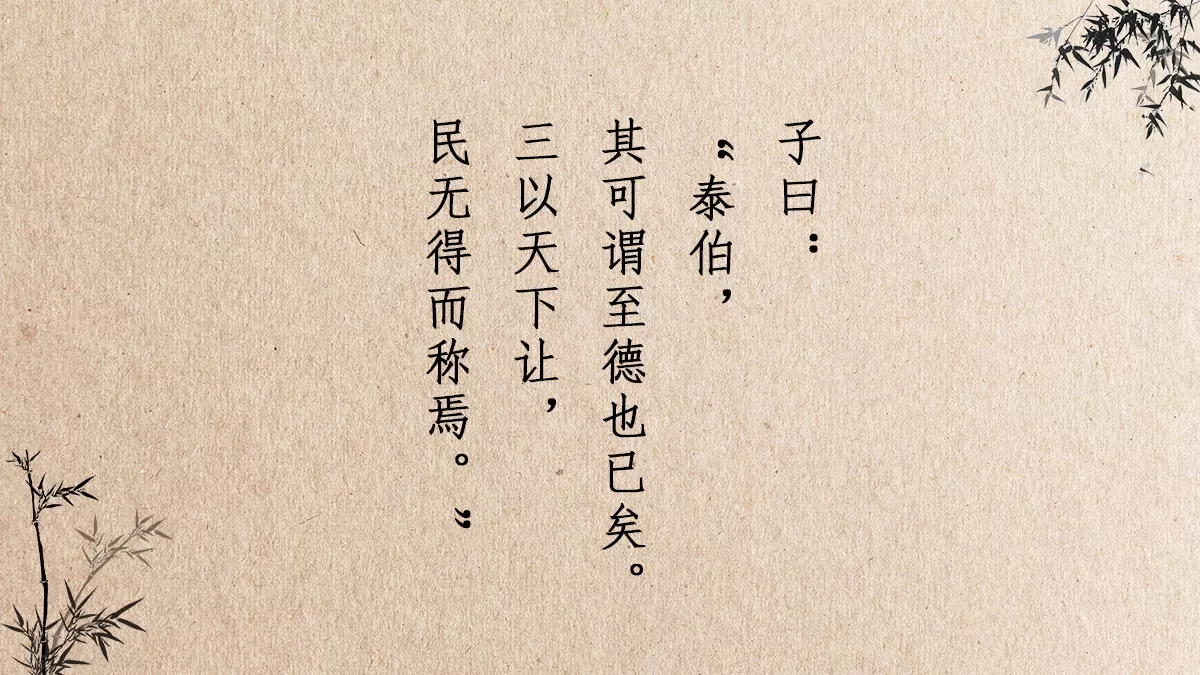 子曰：
“泰伯，
其可谓至德也已矣。
三以天下让，
民无得而称焉。”